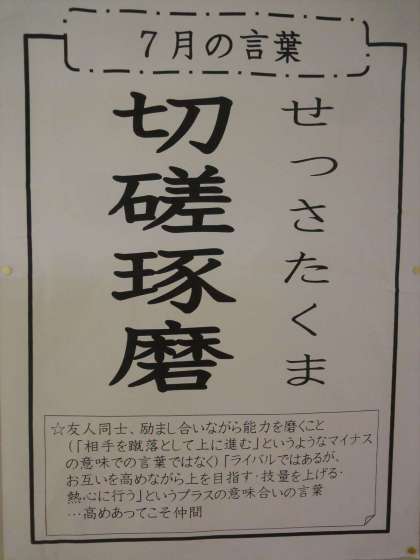 ７月の言葉
切磋琢磨
せっさたくま
☆友人同士、励まし合いながら能力を磨くこと
（「相手を蹴落として上に進む」というようなマイナス
の意味での言葉ではなく）「ライバルではあるが、
お互いを高めながら上を目指す・技量を上げる・
熱心に行う」というプラスの意味合いの言葉
…高めあってこそ仲間